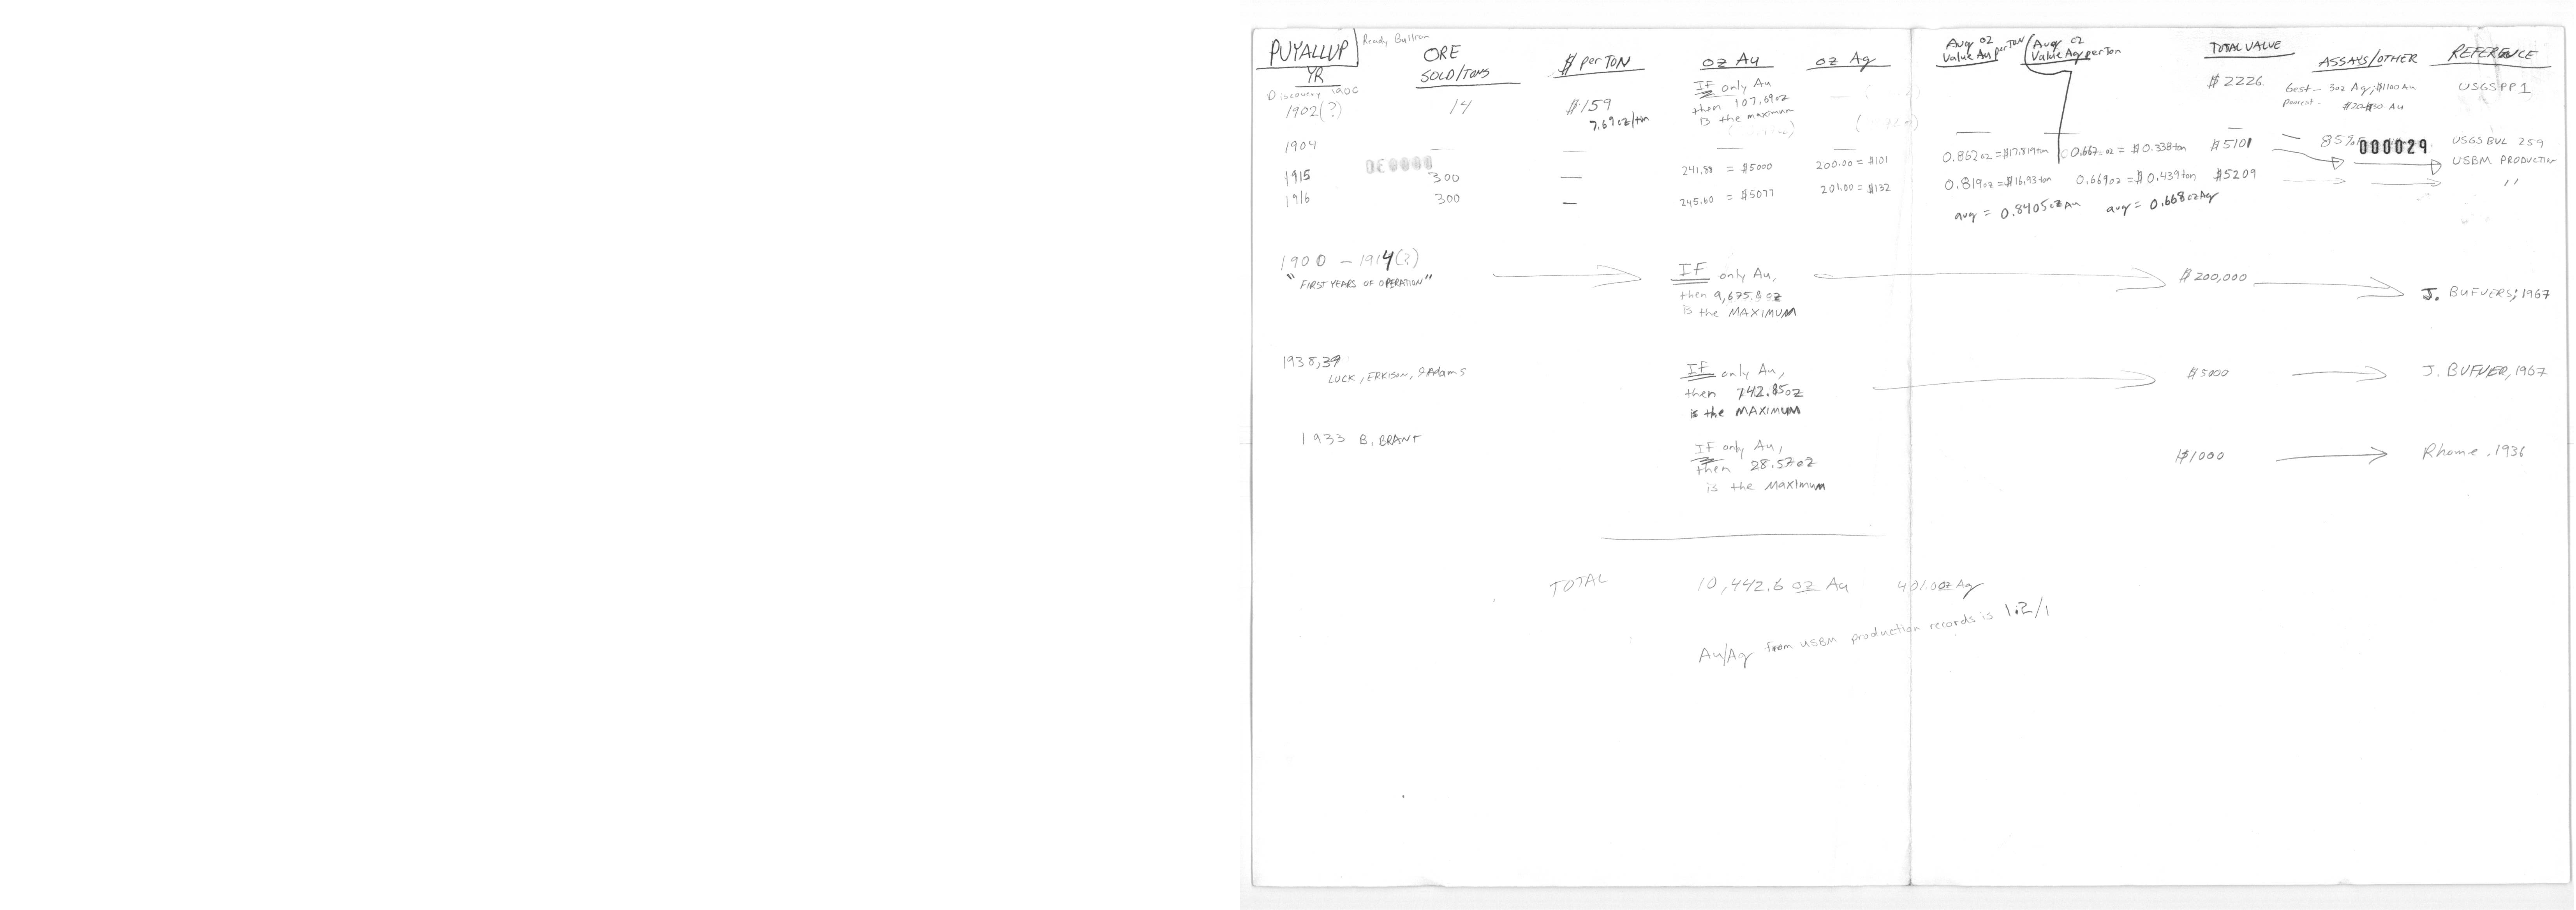 PUYALLUP Ready Bullion ORE $ per TON oz Au oz Ag Avg oz Value Au per TON Avg oz Value Ag per Ton TOTAL VALUE ASSAYS/OTHER REFERENCE
YR SOLD/TONS
Discovery 1900
1902(?) 14 $159 IF only Au $2226. best - 3oz Ag; $1100 Au USGS PP1
7.69 oz/ton then 107.69oz poorest - $20-$30 Au
is the maximum
1904 — — — — — — — 85% 000029 USGS BUL 259
1915 300 — 241.88 = $5000 200.00 = $101 0.862oz = $17.819ton 0.667 oz = $0.338ton $5101 USBM PRODUCTION
1916 300 — 245.60 = $5077 201.00 = $132 0.819oz = $16.93ton 0.669oz = $0.439ton $5209 "
avg = 0.8405oz Au avg = 0.668oz Ag
1900 - 1914(?) IF only Au, $200,000 J. BUFVERS; 1967
"FIRST YEARS OF OPERATION" then 9,675.8oz
is the MAXIMUM
1938,39 IF only Au, $5000 J. BUFVER, 1967
LUCK, ERKISON, & Adams then 142.85oz
is the MAXIMUM
1933 B. BRANT IF only Au, $1000 Rhome. 1936
then 28.57oz
is the Maximum
TOTAL 10,442.6 oz Au 401.0oz Ag
Au/Ag from USBM production records is 1.2/1